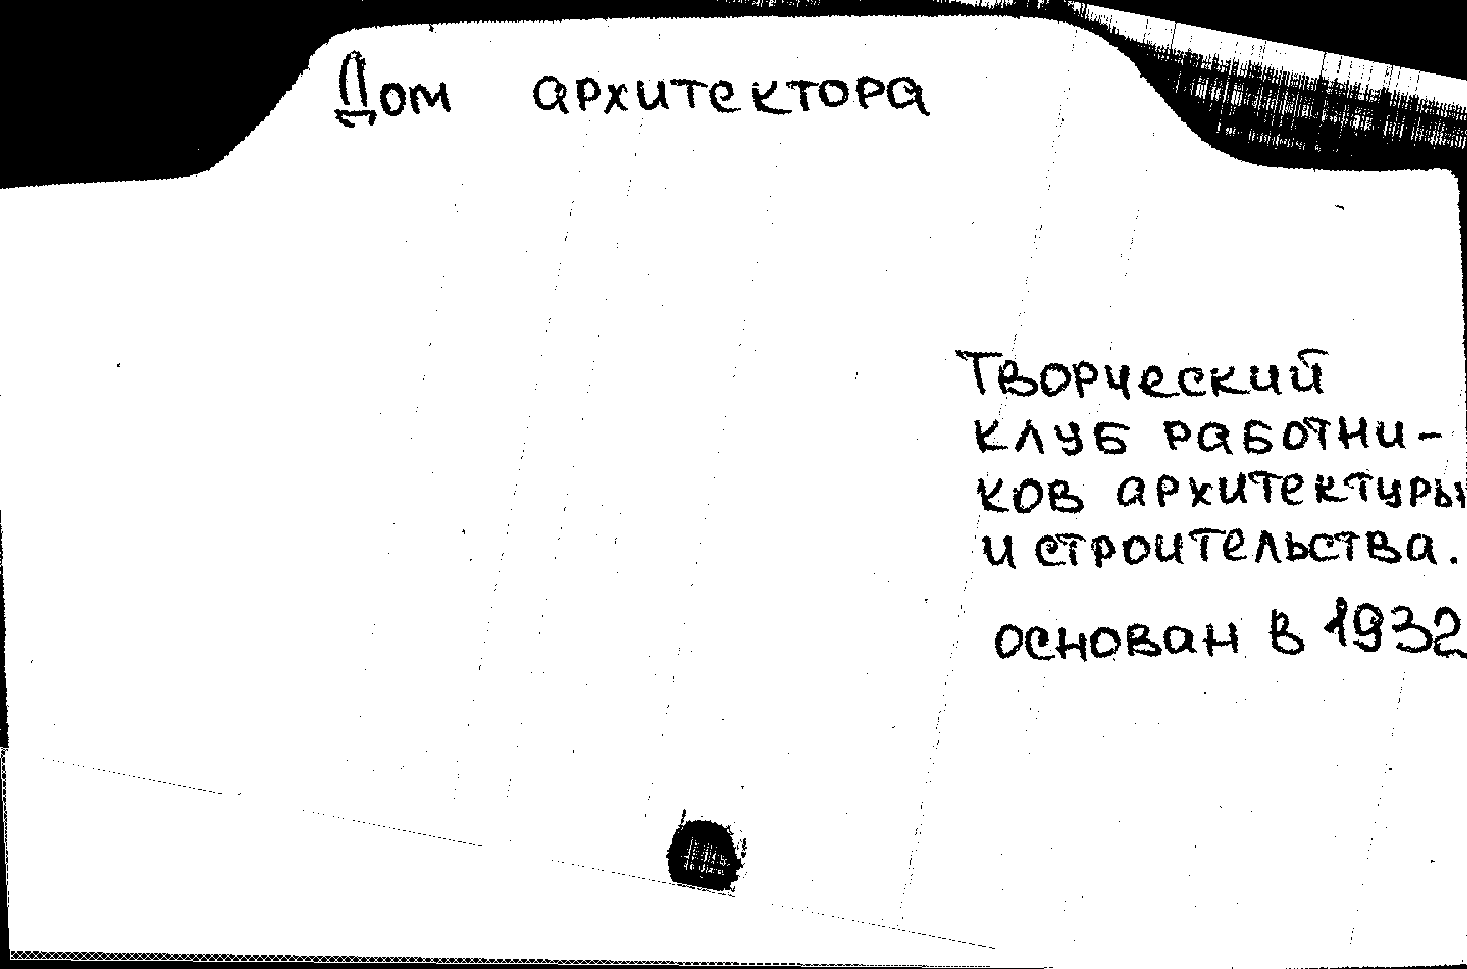 Дом архитектора
Творческий
клуб работни-
ков архитектуры
и строительства.
основан в 1932